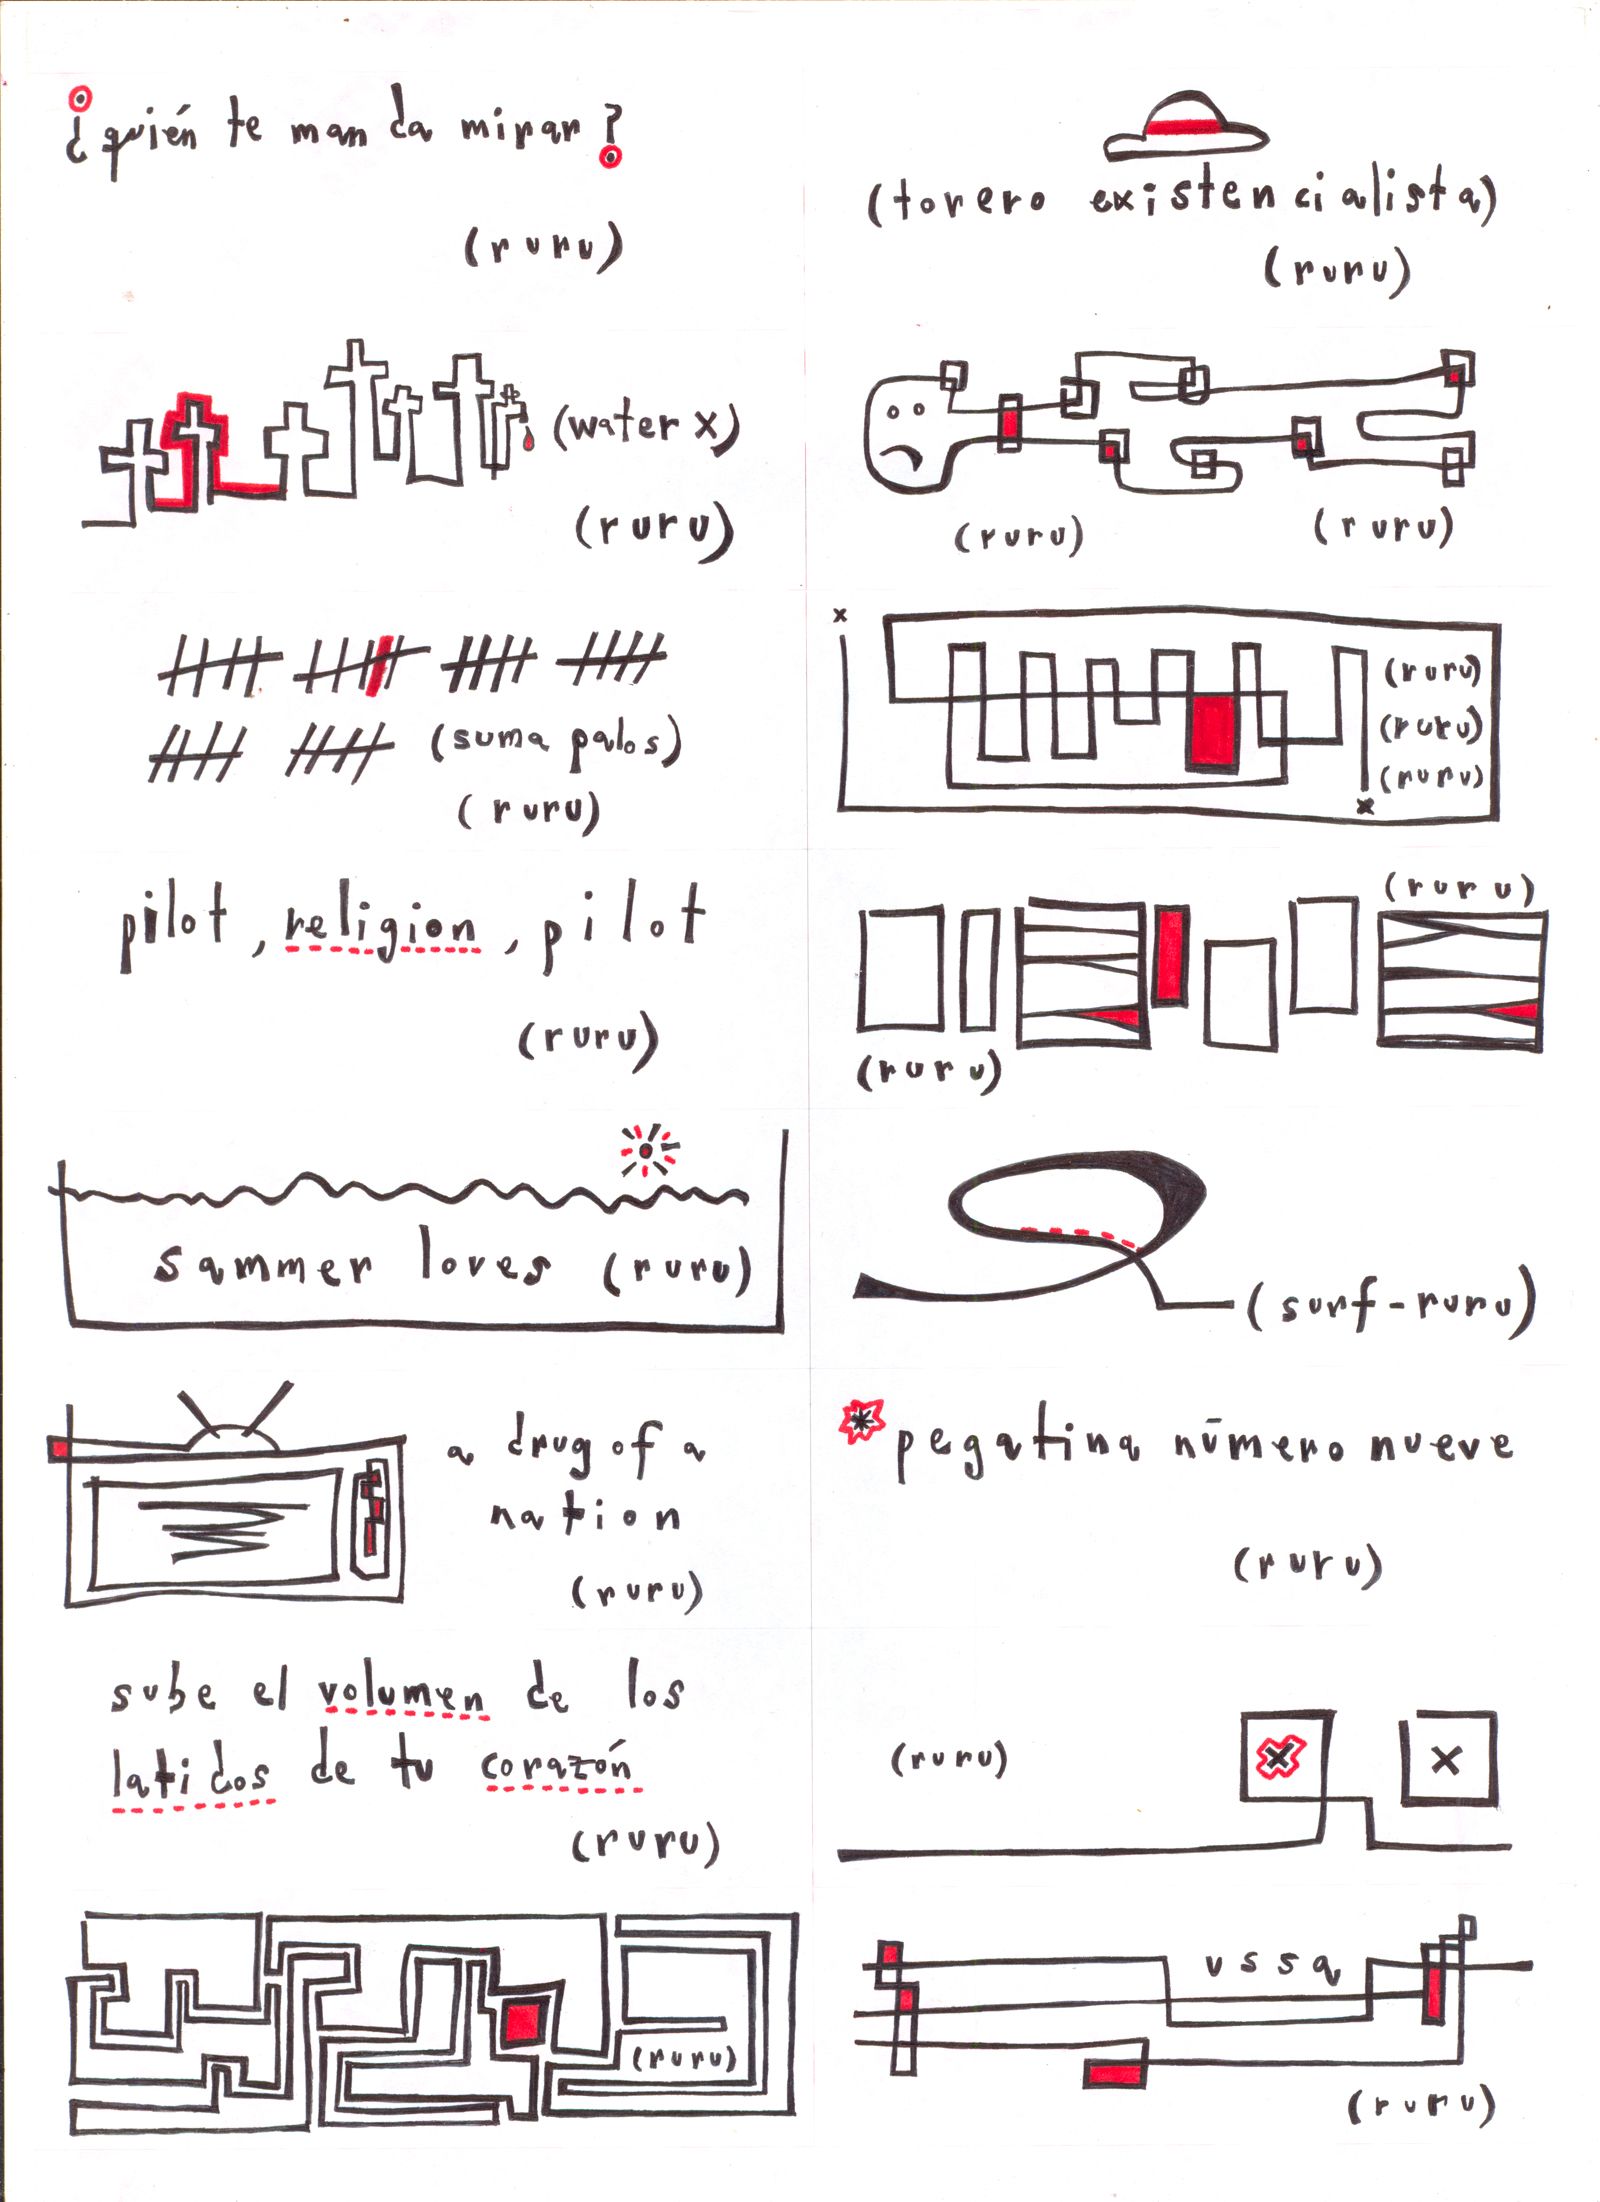 ¿quién te manda mirar?
(ruru)
(torero existencialista)
(ruru)
(water x)
(ruru)
(ruru)
(ruru)
(suma palos)
(ruru)
x
(ruru)
(ruru)
(ruru)
x
pilot, religion, pilot
(ruru)
(ruru)
(ruru)
sammer loves (ruru)
(surf-ruru)
a drug of a
nation
(ruru)
* pegatina número nueve
(ruru)
sube el volumen de los
latidos de tu corazón
(ruru)
(ruru)
x
x
(ruru)
vssq
(ruru)